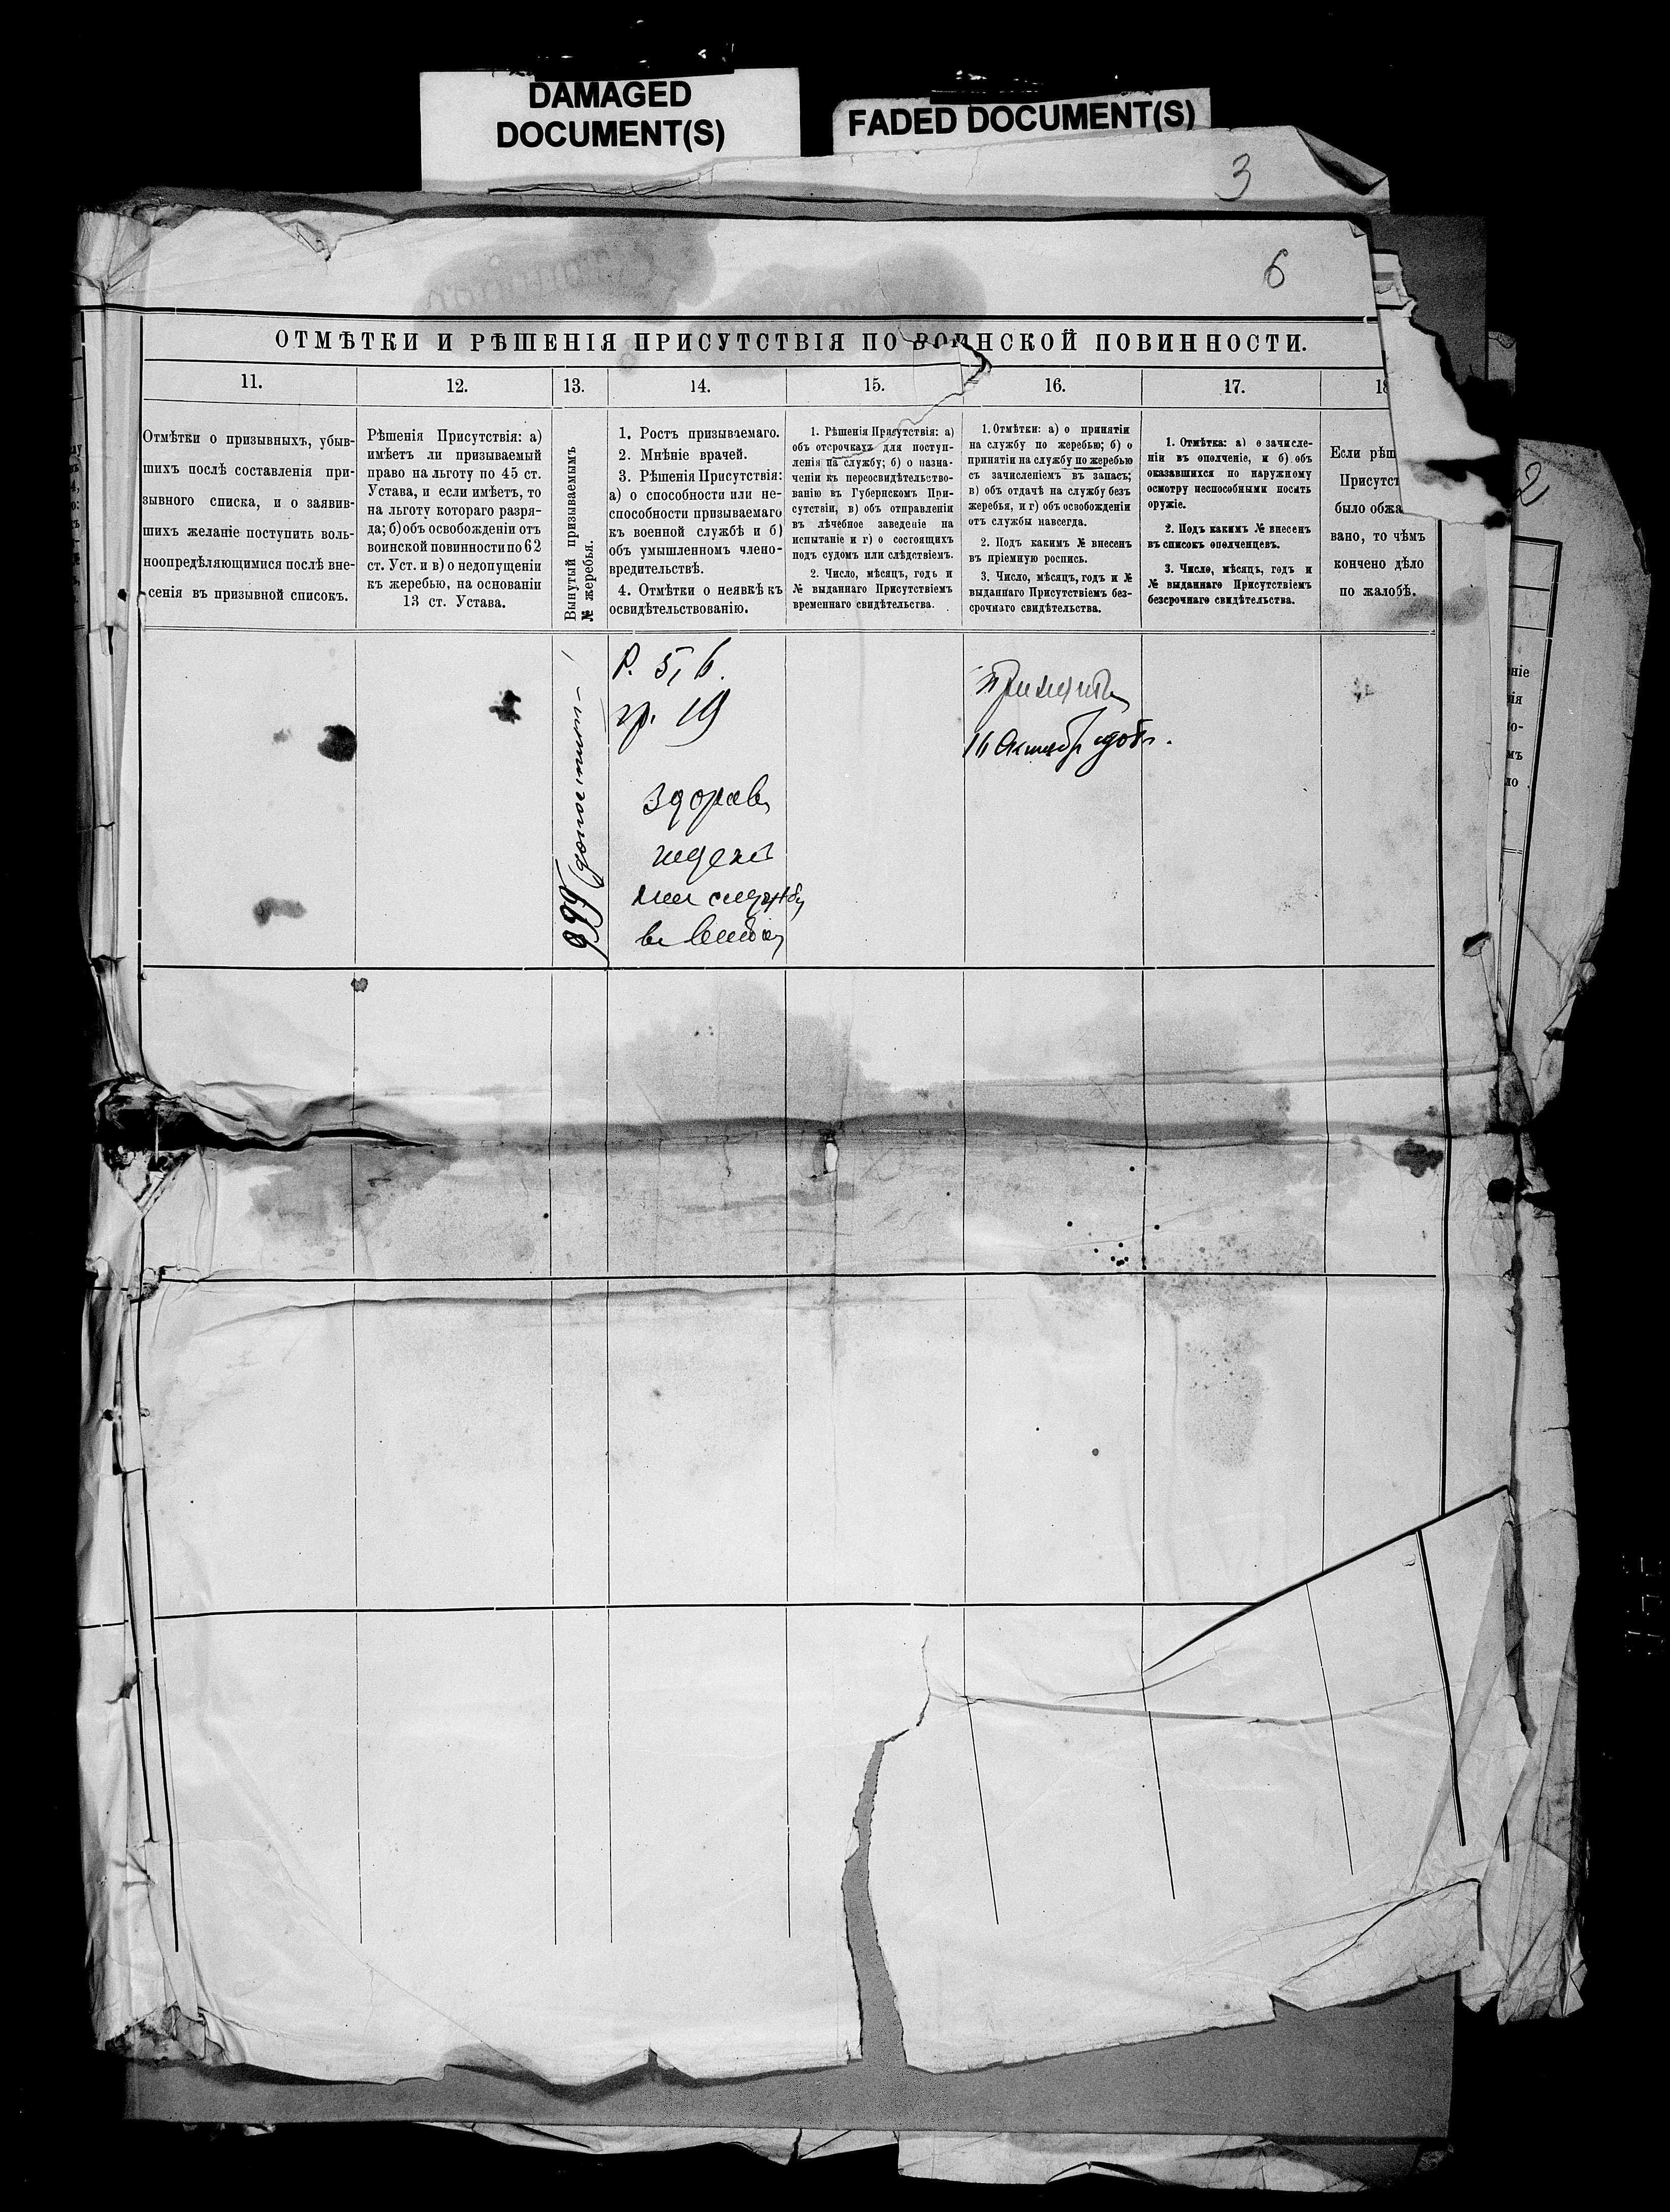 DAMAGED
DOCUMENT(S)
FADED DOCUMENT(S)
3
6
ОТМѢТКИ И РѢШЕНІЯ ПРИСУТСТВІЯ ПО ВОИНСКОЙ ПОВИННОСТИ.
11.
12.
13.
14.
15.
16.
17.
18
Отмѣтки о призывныхъ, убыв-
шихъ послѣ составленія при-
зывного списка, и о заявив-
шихъ желаніе поступить воль-
ноопредѣляющимися послѣ вне-
сенія въ призывной списокъ.
Рѣшенія Присутствія: а)
имѣетъ ли призываемый
право на льготу по 45 ст.
Устава, и если имѣетъ, то
на льготу котораго разря-
да; б) объ освобожденіи отъ
воинской повинности по 62
ст. Уст. и в) о недопущеніи
къ жеребью, на основаніи
13 ст. Устава.
Вынутый призываемымъ
№ жеребья.
1. Ростъ призываемаго.
2. Мнѣніе врачей.
3. Рѣшенія Присутствія:
а) о способности или не-
способности призываемаго
къ военной службѣ и б)
объ умышленномъ члено-
вредительствѣ.
4. Отмѣтки о неявкѣ къ
освидѣтельствованію.
1. Рѣшенія Присутствія: а)
объ отсрочкахъ для поступ-
ленія на службу; б) о назна-
ченіи къ переосвидѣтельство-
ванію въ Губернскомъ При-
сутствіи, в) объ отправленіи
въ лѣчебное заведеніе на
испытаніе и г) о состоящихъ
подъ судомъ или слѣдствіемъ.
2. Число, мѣсяцъ, годъ и
№ выданнаго Присутствіемъ
временнаго свидѣтельства.
1. Отмѣтки: а) о принятіи
на службу по жеребью; б) о
принятіи на службу по жеребью
съ зачисленіемъ въ запасъ;
в) объ отдачѣ на службу безъ
жеребья, и г) объ освобожденіи
отъ службы навсегда.
2. Подъ какимъ № внесенъ
въ пріемную роспись.
3. Число, мѣсяцъ, годъ и №
выданнаго Присутствіемъ без-
срочнаго свидѣтельства.
1. Отмѣтка: а) о зачисле-
ніи въ ополченіе, и б) объ
оказавшихся по наружному
осмотру неспособными носить
оружіе.
2. Подъ какимъ № внесенъ
въ списокъ ополченцевъ.
3. Число, мѣсяцъ, годъ и
№ выданнаго Присутствіемъ
безсрочнаго свидѣтельства.
Если рѣш
Присутст
было обжа
вано, то чѣмъ
кончено дѣло
по жалобѣ.
2
Р. 5, 6.
гр. 19
здоровъ
годенъ
службу
въ
999
Принятъ
16 Октября